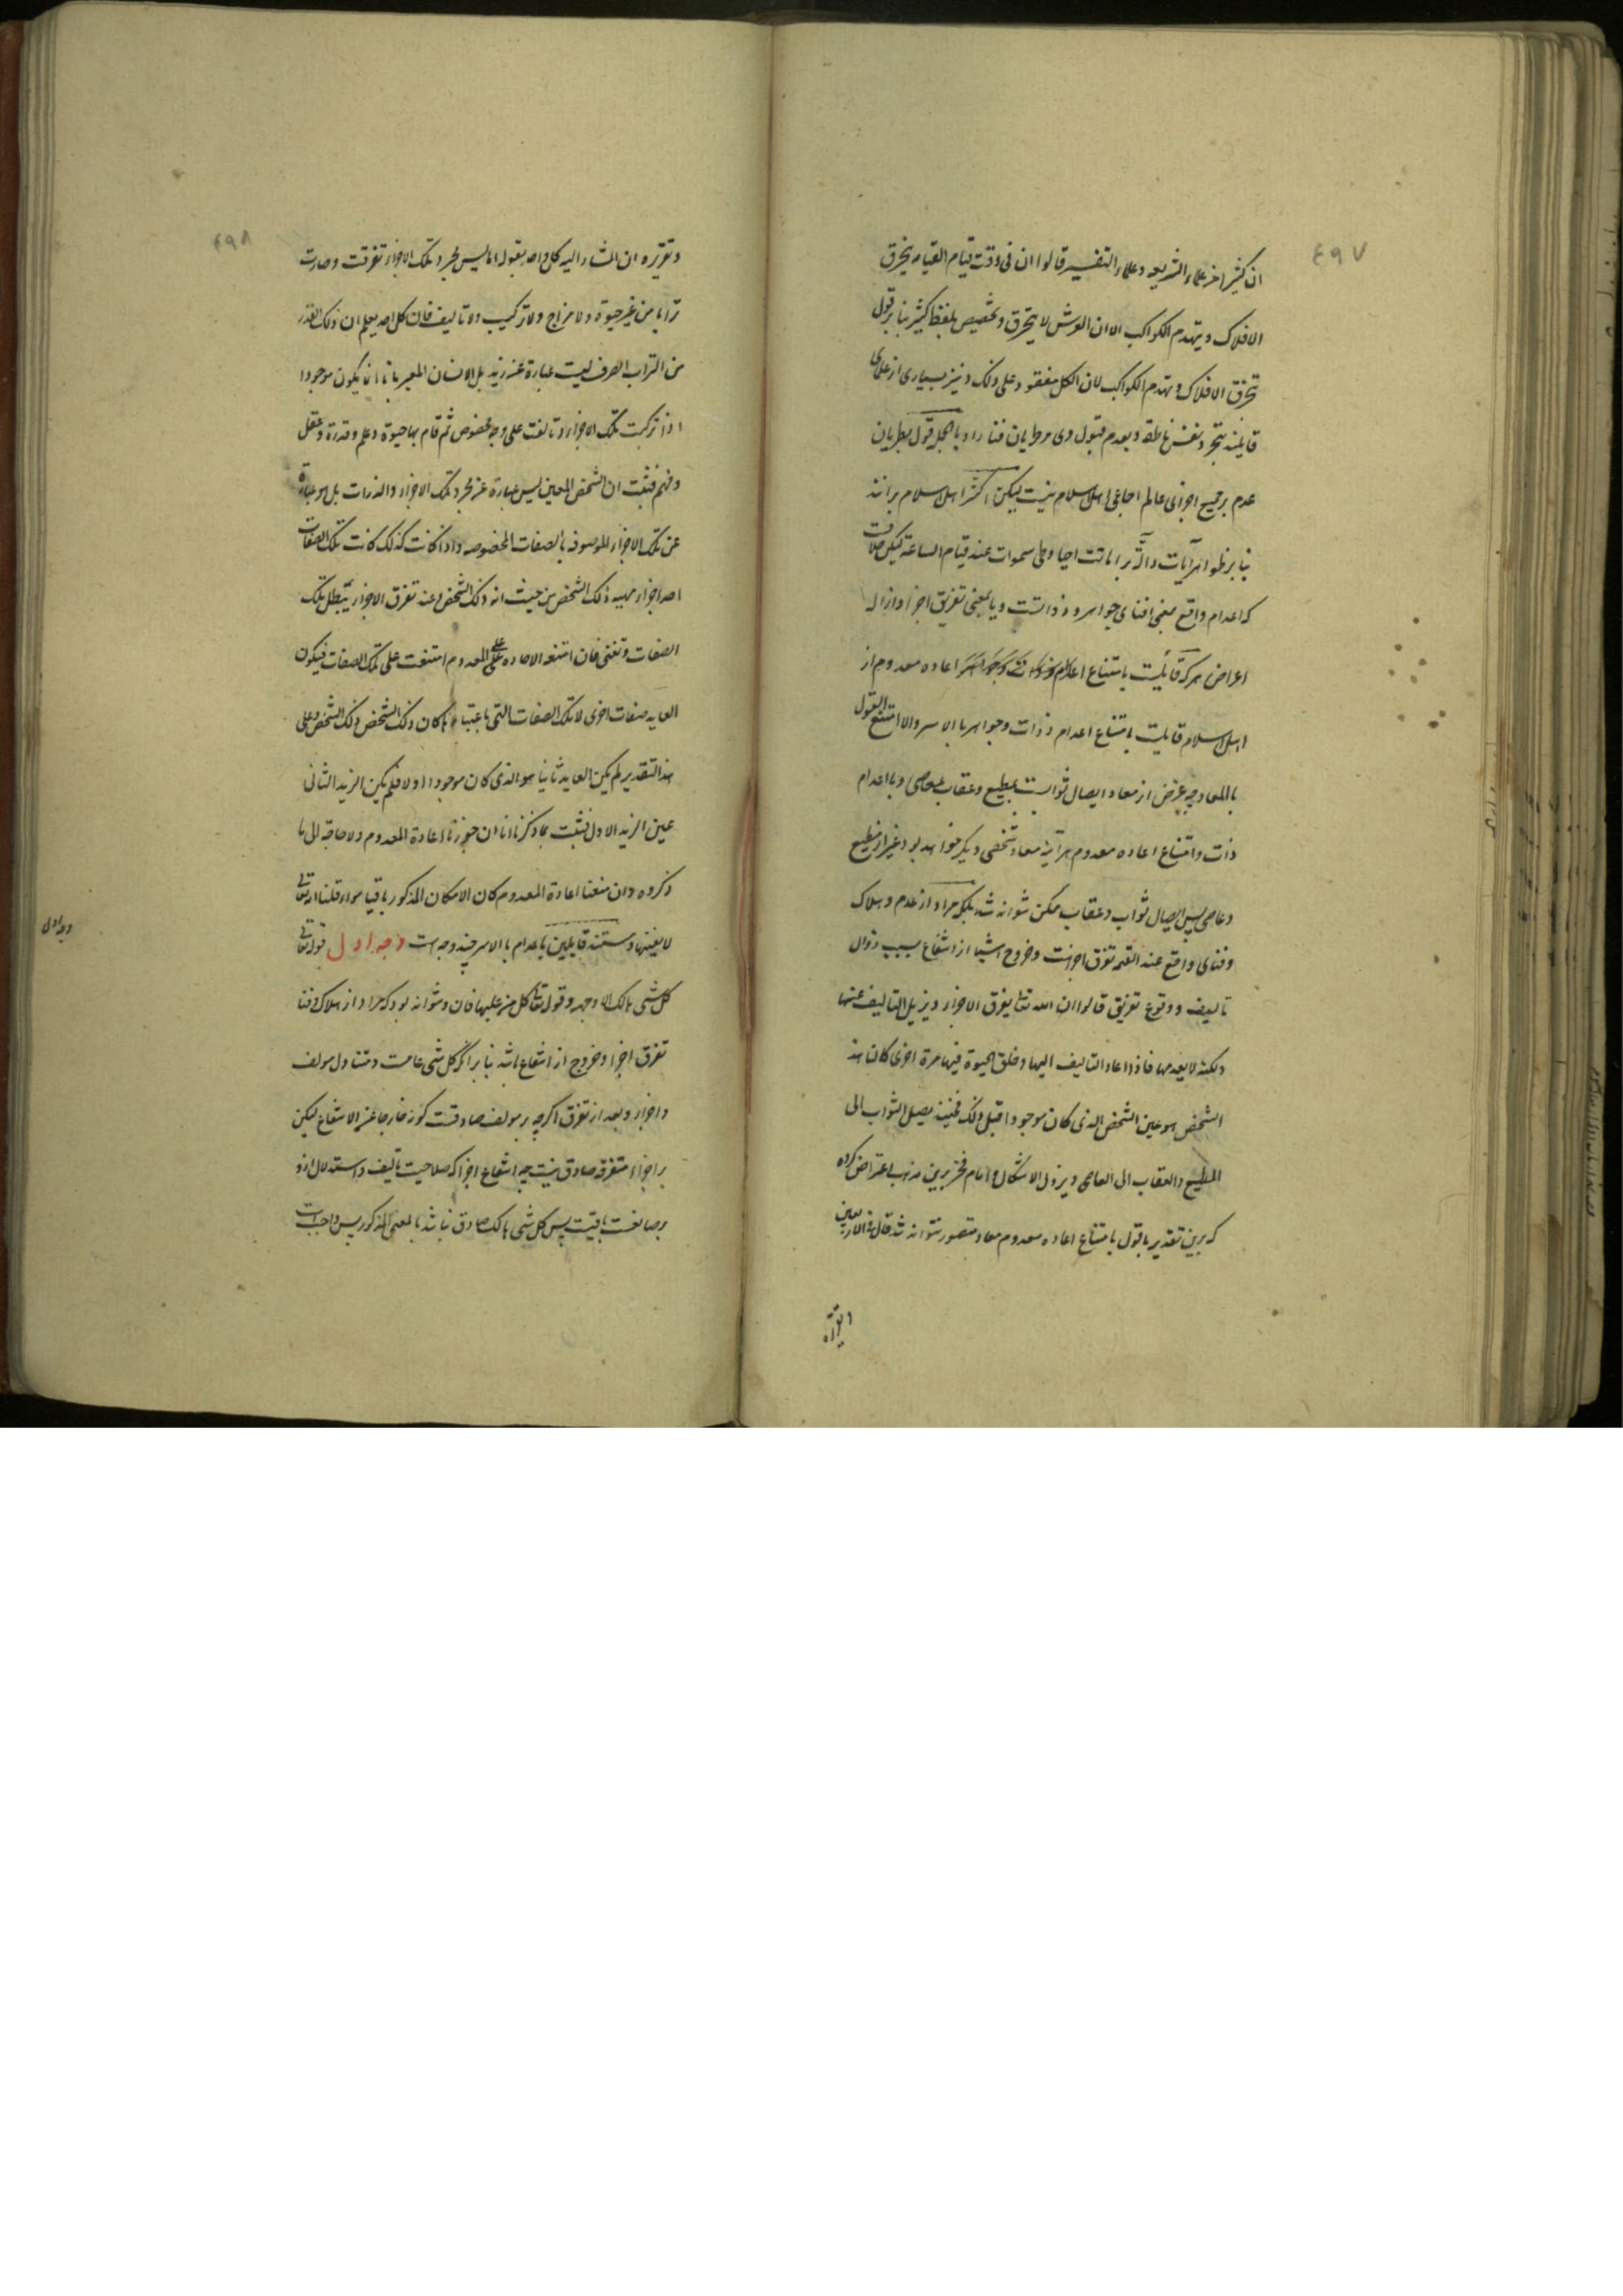 ٤٩٧
ان كثيرا من علماء الشريعه و علماء التفسير قالوا ان فى وقت قيام القيامه ينخرق
الافلاك و يتهدم الكواكب الا ان العرش لا يتخرق و تخصيص بلفظ كثير بنا بر قول
تخرق الافلاك و تهدم الكواكب لان الكل مفقود على ذلك و نيز بسيارى از علماى
قايلند بتجرد نفس ناطقه و بعدم قبول وى مر طريان فنا را و بالجمله قول بطريان
عدم بر جميع اجزاى عالم اجماعى اهل اسلام نيست ليكن اكثر اهل اسلام برانند
بنا بر ظواهر آيات داله بر اماتت احيا و طى سموات عند قيام الساعة ليكن خلافست
كه اعدام واقع بمعنى افناى جواهر و ذواتست و يا بمعنى تفريق اجزا و ازاله
اعراض هر كه قايلست بامتناع اعاده معدوم از
اهل اسلام قايلست بامتناع اعدام ذوات و جواهر بالاسر و الا امتنع القول
بالمعاد چه غرض از معاد ايصال ثوابست بمطيع و عقاب بعاصى و با اعدام
ذات و امتناع اعاده معدوم هر آينه معاد شخصى ديگر خواهد بود غير از مطيع
و عاصى پس ايصال ثواب و عقاب ممكن نتواند شد بلكه مراد از عدم و هلاك
و فناى واقع عند القيمه تفرق اجزاست و خروج اشيا از انتفاع بسبب زوال
تاليف و وقوع تفريق قالوا ان الله تعالى يفرق الاجزاء و يزيل التاليف عنها
ولكنه لا يعدمها فاذا اعاد التاليف اليها و خلق الحيوة فيها مرة اخرى كان هذا
الشخص هو عين الشخص الذى كان موجودا قبل ذلك فحينئذ يصل الثواب الى
المطيع و العقاب الى العاصى و يزول الاشكال و امام فخر برين مذهب اعتراض كرده
كه برين تقدير با قول بامتناع اعاده معدوم معاد متصور نتواند شد قال فى الاربعين
و تقريره
٤٩٨
و تقريره ان المشار اليه لكل واحد بقوله انا ليس مجرد تلك الاجزاء تفرقت و صارت
ترابا من غير حيوة و لا مزاج و لا تركيب و لا تاليف فان كل احد يعلم ان ذلك القدر
من التراب الصرف ليست عبارة عن زيد بل الانسان المعبر بانا انما يكون موجودا
اذا تركبت تلك الاجزاء و تالفت على وجه مخصوص ثم قام بها حيوة و علم و قدرة و عقل
و فهم فثبت ان الشخص المعين ليس عبارة عن مجرد تلك الاجزاء و الذرات بل هو عبارة
عن تلك الاجزاء الموصوفه بالصفات المخصوصه و اذا كانت كذلك كانت تلك الصفات
احد اجزاء مهيه ذلك الشخص من حيث انه ذلك الشخص و عند تفرق الاجزاء يبطل تلك
الصفات و تفنى فان امتنع الاعاده على المعدوم امتنعت على تلك الصفات فيكون
العايد صفات اخرى لا تلك الصفات التى باعتبارها كان ذلك الشخص ذلك الشخص و على
هذا التقدير لم يكن العايد ثانيا هو الذى كان موجودا اولا فلم يكن الزيد الثانى
عين الزيد الاول فثبت بما ذكرنا انا ان جوزنا اعادة المعدوم و لا حاجة الى ما
ذكروه و ان منعنا اعادة المعدوم كان الامكان المذكور باقيا سواء قلنا انه تعالى
لا يفنيها و مستند قايلين باعدام بالاسر چند وجه است وجه اول قوله تعالى
كل شى هالك الا وجهه و قوله تعالى كل من عليها فان و نتواند بود كه مراد از هلاك و فنا
تفرق اجزا و خروج از انتفاع باشد بنا بر آنكه كل شى عامست و متناول مولف
و اجزا و بعد از تفرق اگرچه بر مولف صادقست كونه خارجا عن الانتفاع ليكن
بر اجزاء متفرقه صادق نيست چه انتفاع اجزا كه صلاحيت تاليف و استدلال ازو
بر صانعست باقيست پس كل شى هالك صادق نباشد بالمعنى المذكور پس واجبست
وجه اول